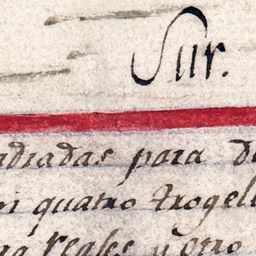 Sur.
adradas para d
n quatro trogel
reales y otro